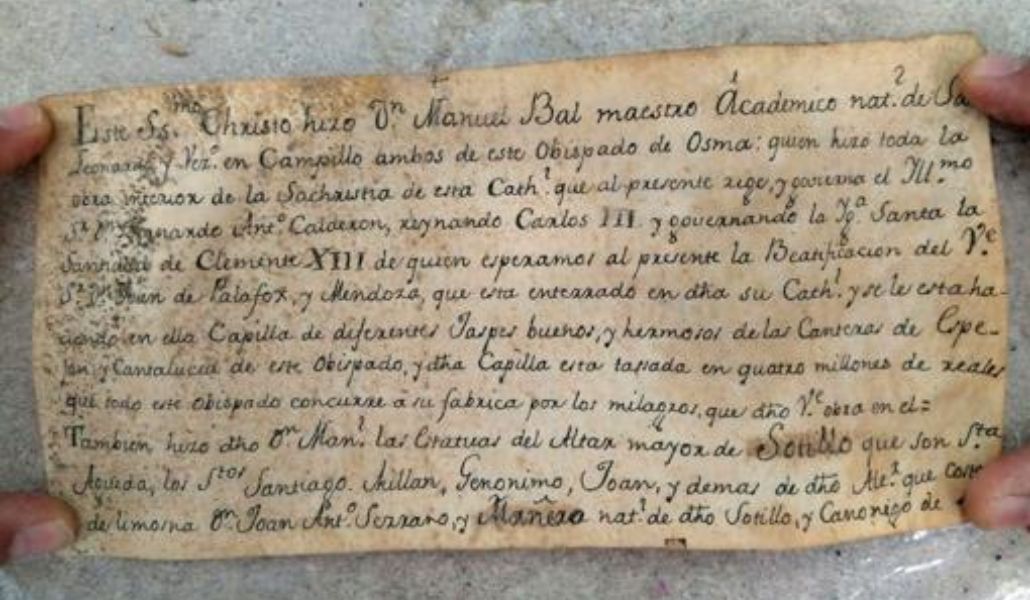 Este Ss.mo Christo hizo Dn. Manuel Bal maestro Academico nat.l de Sa
Leonardo y Vez.o en Campillo ambos de este Obispado de Osma: quien hizo toda la
obra interior de la Sachristia de esta Cath.l que al presente rige, y govierna el Yll.mo
S.r Dn. Bernardo Ant.o Calderon, reynando Carlos III. y governando la Yg.a Santa la
Santidad de Clemente XIII de quien esperamos al presente la Beatificacion del V.e
S.r Dn. Juan de Palafox, y Mendoza, que esta enterrado en dha su Cath.l y se le esta ha-
ciendo en ella Capilla de diferentes Jaspes buenos, y hermosos de las Canteras de Espe-
jon, y Cantalucia de este Obispado, y dha Capilla esta tassada en quatro millones de reales
que todo este Obispado concurre a su fabrica por los milagros, que dho V.e obra en el=
Tambien hizo dho Dn. Man.l las Estatuas del Altar mayor de Sotillo que son S.ta
Agueda, los S.tos Santiago. Millan, Geronimo, Joan, y demas de dho Alt.r que
de limosna Dn. Joan Ant.o Serrano, y Mañero nat.l de dho Sotillo, y Canonigo de